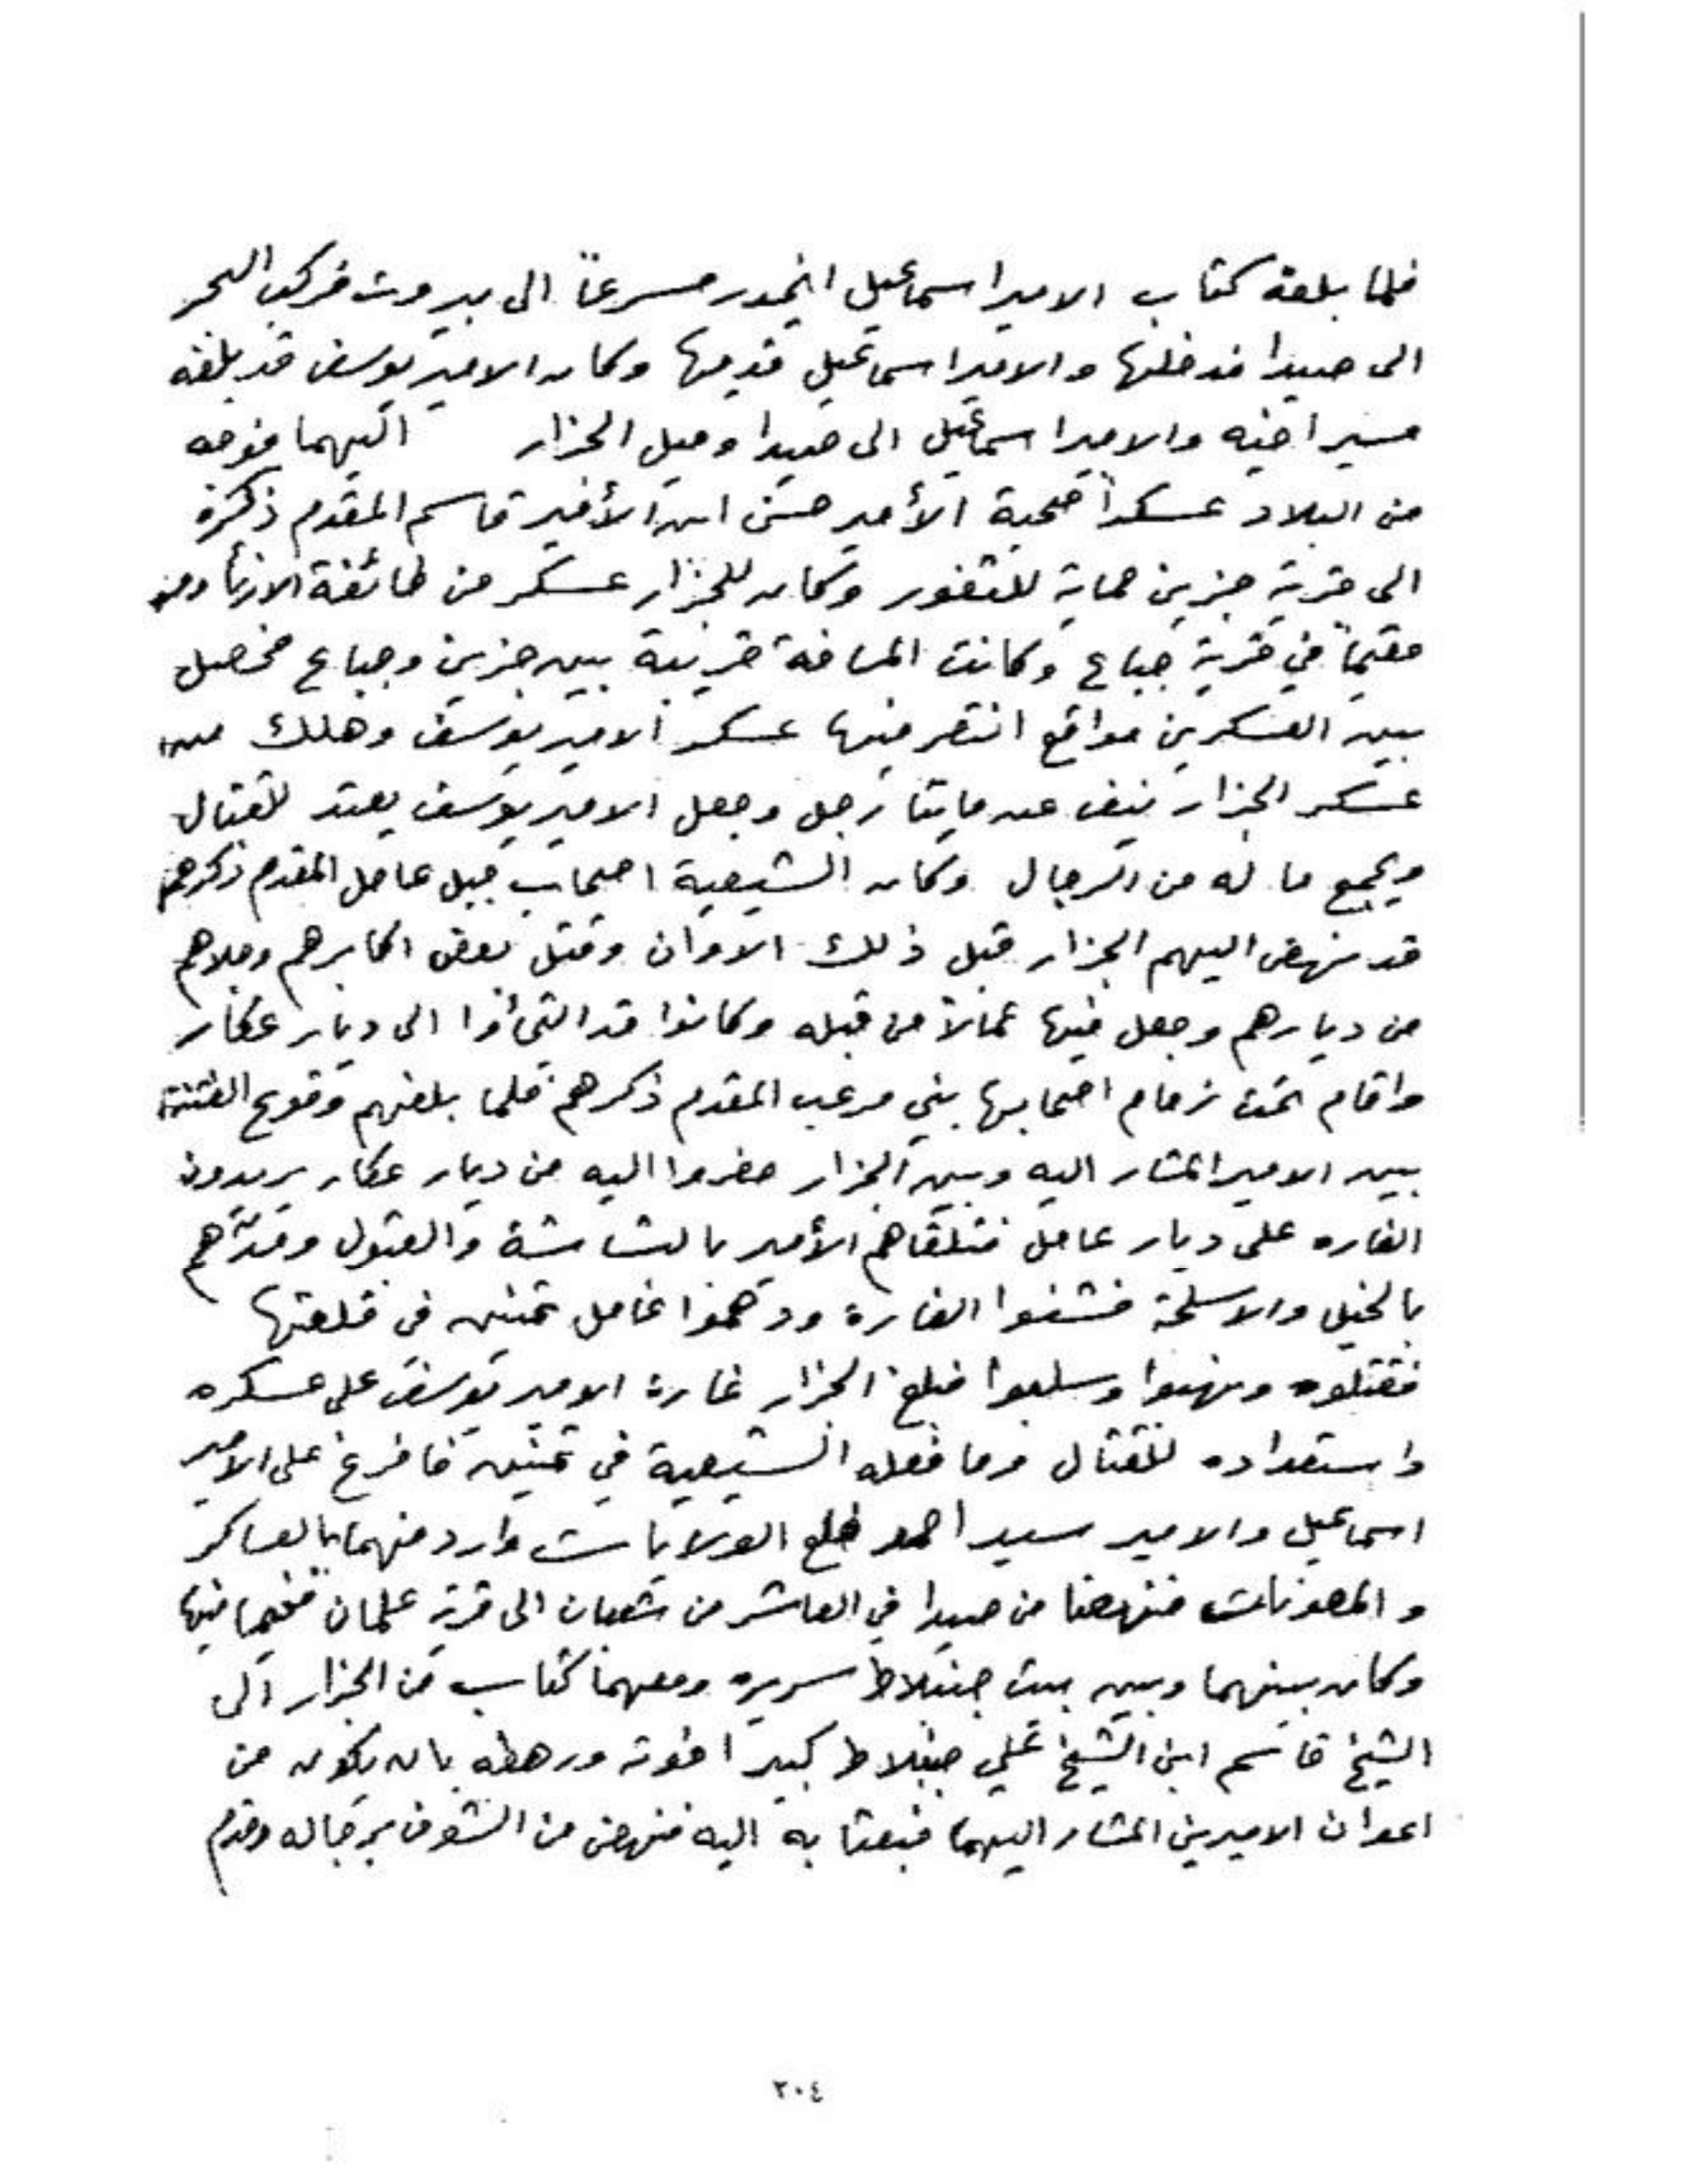 فلما بلغه كتاب الامير اسماعيل انحدر مسرعاً الى بيروت فركب البحر
الى صيدا فدخلها والامير اسماعيل قدمها وكان الامير يوسف قد بلغه
مسير اخيه والامير اسماعيل الى صيدا وميل الجزار اليهما فوجه
من البلاد عسكراً صحبة الأمير حسن ابن الأمير قاسم المقدم ذكره
الى قرية جزين حماية للثغور وكان للجزار عسكر من طائفة الارناؤوط
مقيماً في قرية جباع وكانت المسافة قريبة بين جزين وجباع فحصل
بين العسكرين مواقع انتصر فيها عسكر الامير يوسف وهلك من
عسكر الجزار نيف عن مايتا رجل وجعل الامير يوسف يعتد للقتال
ويجمع ما له من الرجال وكان الشيعية اصحاب جبل عامل المقدم ذكرهم
قد نهض اليهم الجزار قبل ذلك الاوان وقتل بعض اكابرهم وجلاهم
من ديارهم وجعل فيها عمالاً من قبله وكانوا قد التجأوا الى ديار عكار
واقام تحت زمام اصحابها بني مرعب المقدم ذكرهم فلما بلغهم وقوع الفتنة
بين الامير المشار اليه وبين الجزار حضروا اليه من ديار عكار يريدون
الغاره على ديار عامل فتلقاهم الأمير بالبشاشة والقبول ومدّهم
بالخيل والاسلحة فشنوا الغارة ودهموا عامل تبنين في قلعتها
فقتلوه ونهبوا وسلبوا فبلغ الجزار غارة الامير يوسف على عسكره
واستعداده للقتال وما فعله الشيعية في تبنين فافرغ على الامير
اسماعيل والامير سيد احمد خلع الولايات واردفهما بالعساكر
والمعونات فنهضا من صيدا في العاشر من شعبان الى قرية علمان فخيما فيها
وكان بينهما وبين بيت جنبلاط سريره ومعهما كتاب من الجزار الى
الشيخ قاسم ابن الشيخ علي جنبلاط كبير اخوته ورهطه بان يكون من
اعوان الاميرين المشار اليهما فبعثا به اليه فنهض من الشوف برجاله وقدم
٢٠٤